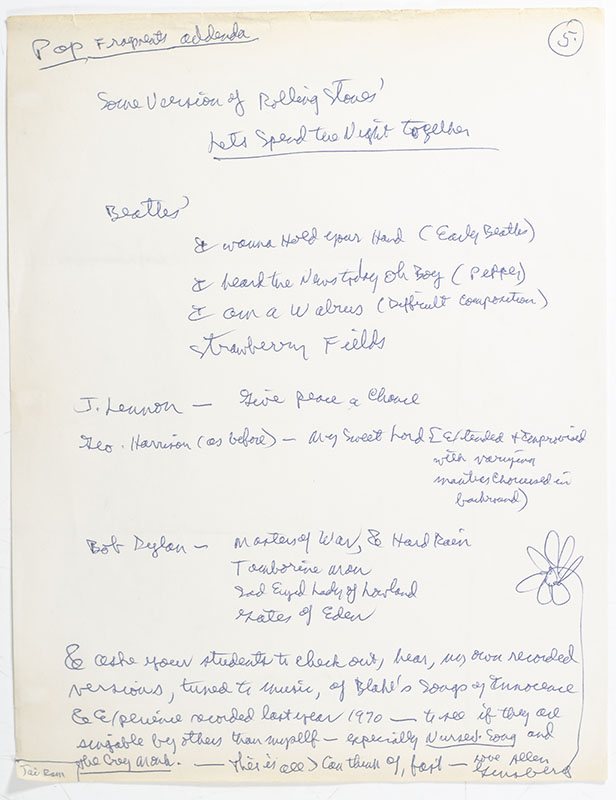 Pop Fragments addenda
5.
Some Version of Rolling Stones'
Lets Spend the Night together
Beatles'
I wanna Hold your Hand (Early Beatles)
I heard the News today Oh Boy (Pepper)
I am a Walrus (Difficult Composition)
Strawberry Fields
J. Lennon — Give peace a Chance
Geo. Harrison (as before) — My Sweet Lord [Extended & Improvised
with varying
mantras chorused in
background)
Bob Dylan — Masters of War, & Hard Rain
Tambourine man
Sad Eyed Lady of Lowland
Gates of Eden
& ask your students to check out, hear, my own recorded
versions, tuned to music, of Blake's Songs of Innocence
& Experience recorded last year 1970 — to see if they are
singable by others than myself — especially Nurses Song and
the Grey Monk. — This is all I can think of, fast — love Allen
Ginsberg
Jai Ram